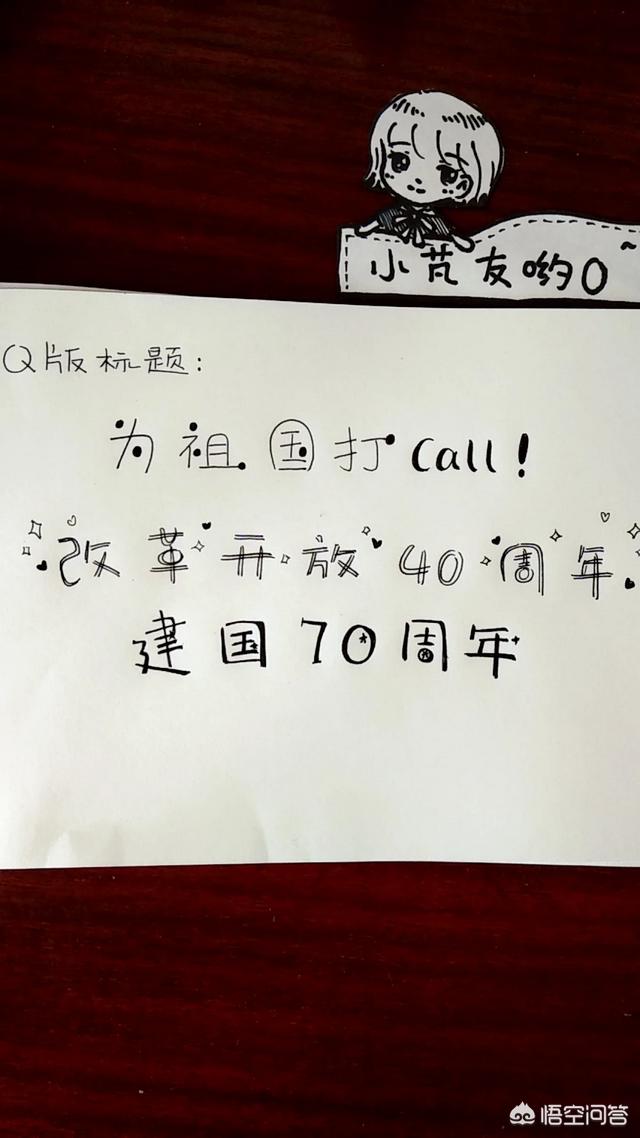 小芃友哟0~
Q版标题:
为祖国打call!
改革开放40周年
建国70周年
悟空问答